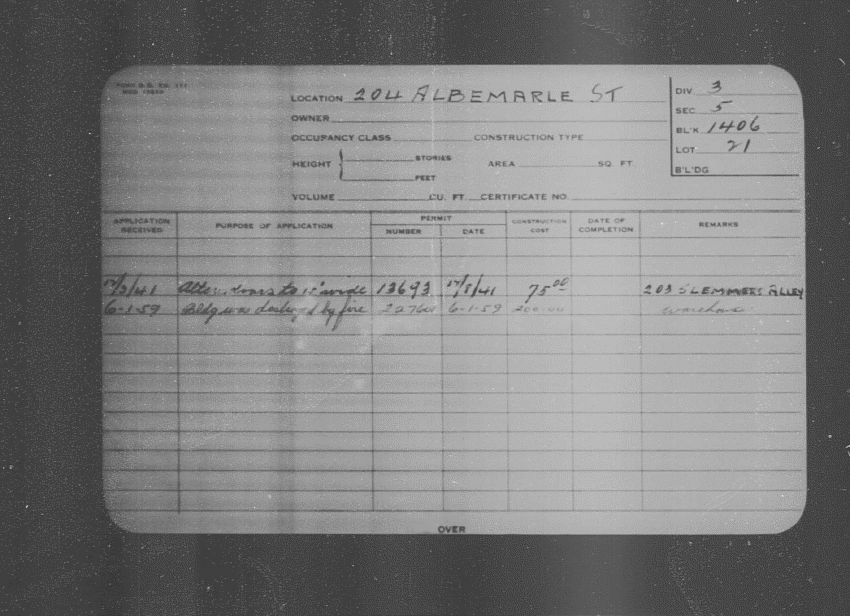 LOCATION 204 ALBEMARLE ST
DIV. 3
OWNER
SEC 5
OCCUPANCY CLASS CONSTRUCTION TYPE
BL'K 1406
HEIGHT STORIES AREA SQ. FT.
FEET
LOT 21
B'L'DG
VOLUME CU. FT. CERTIFICATE NO.
APPLICATION RECEIVED PURPOSE OF APPLICATION PERMIT NUMBER DATE CONSTRUCTION COST DATE OF COMPLETION REMARKS
Alter doors to wide 13693 75.00 203 SLEMMERS ALLEY
6-1-59 Bldg was destroyed by fire 6-1-59 200.00 warehouse
OVER